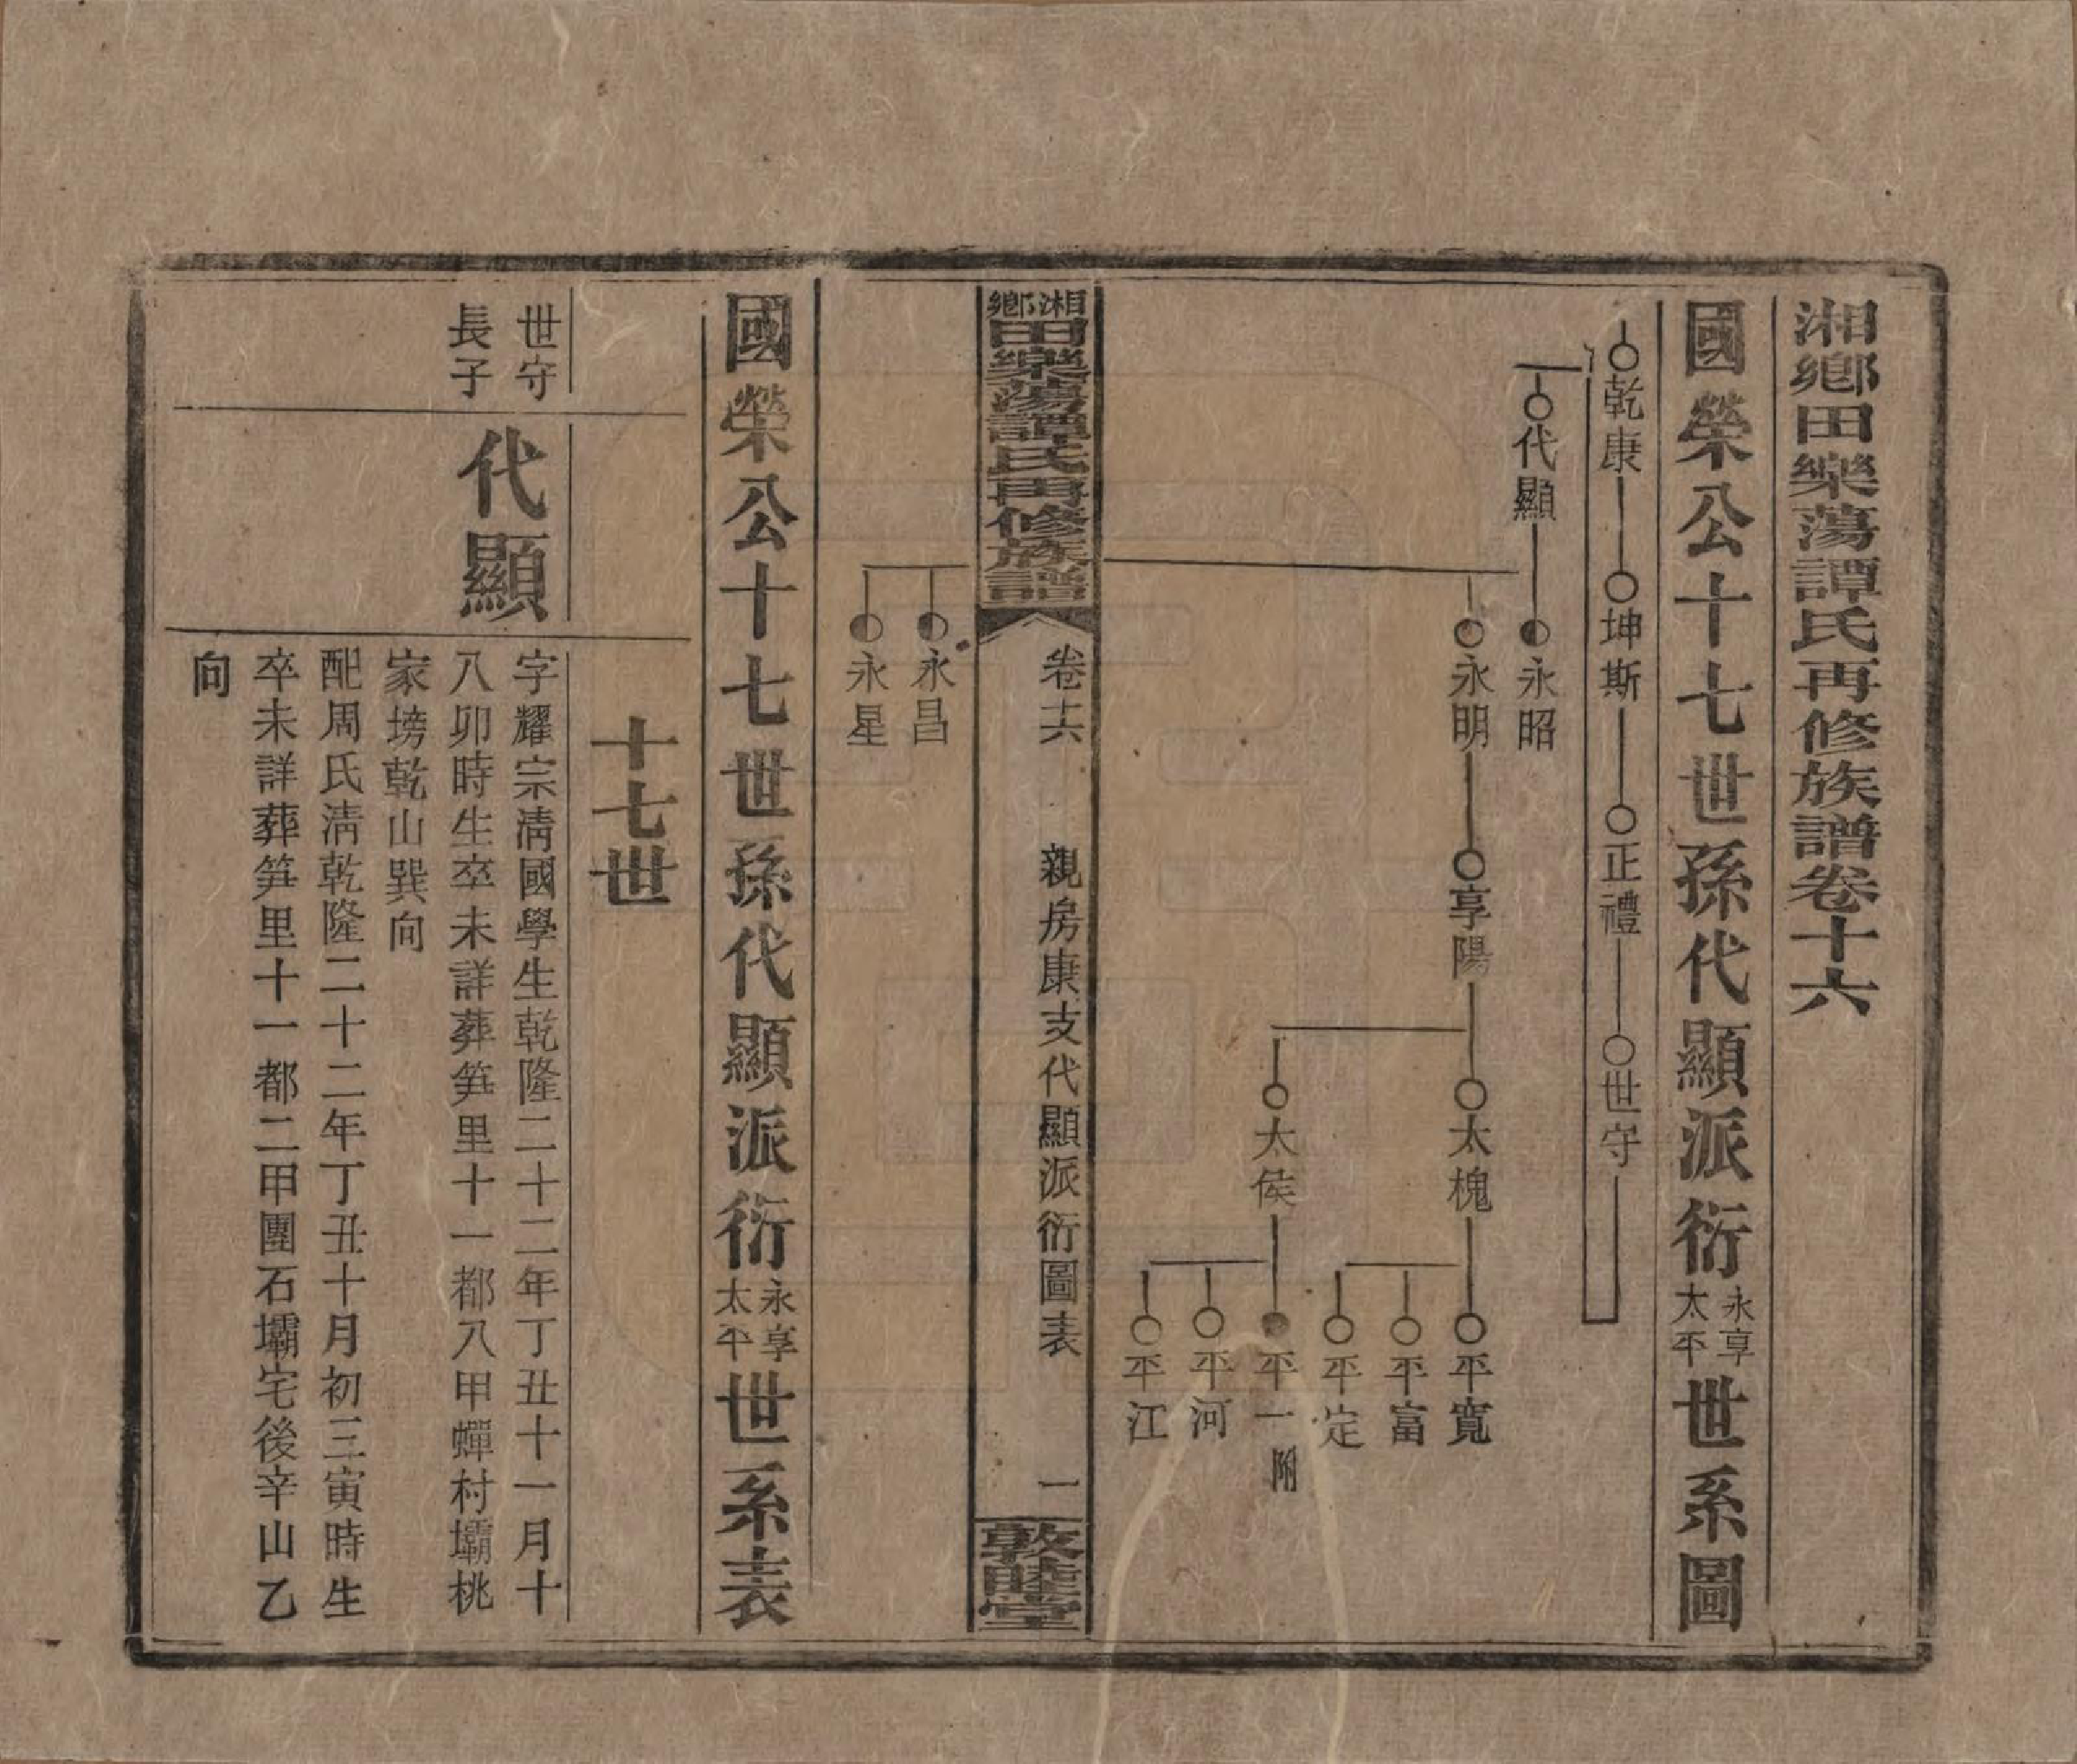 湘鄉田樂蕩譚氏再修族譜卷十六
國榮公十七世孫代顯派衍永享太平世系圖
乾康 坤斯 正禮 世守
代顯 永昭
永明 享陽 太槐 平寬
平富
平定
太侯 平一附
平河
平江
湘鄉田樂蕩譚氏再修族譜 卷十六 親房康支代顯派衍圖表 一 敦睦堂
永昌
永星
國榮公十七世孫代顯派衍永享太平世系表
十七世
世守
長子
代顯
字耀宗清國學生乾隆二十二年丁丑十一月十
八卯時生卒未詳葬笋里十一都八甲蟬村壩桃
家塝乾山巽向
配周氏清乾隆二十二年丁丑十月初三寅時生
卒未詳葬笋里十一都二甲團石壩宅後辛山乙
向